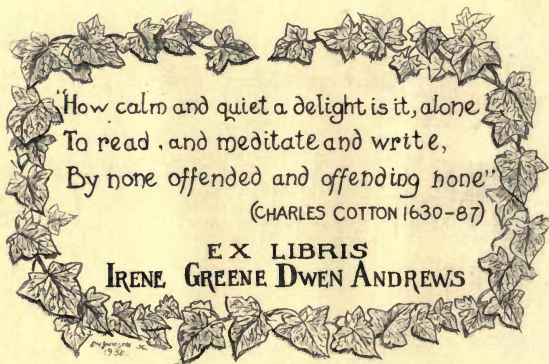 "How calm and quiet a delight is it, alone
To read, and meditate and write,
By none offended and offending none"
(CHARLES COTTON 1630-87)
EX LIBRIS
IRENE GREENE DWEN ANDREWS